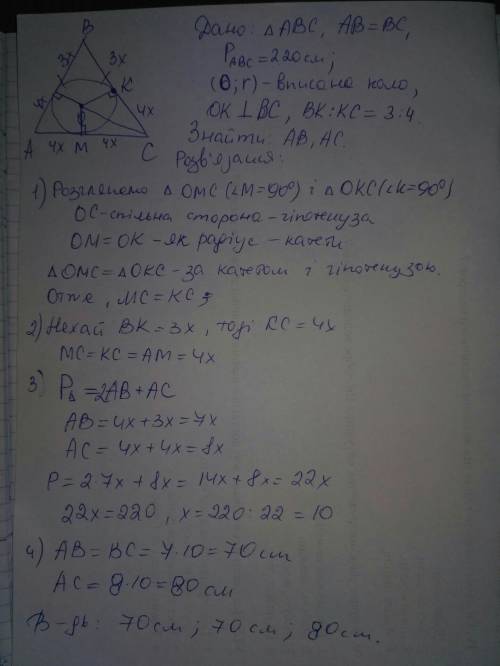 Дано: △ABC, AB=BC,
P ABC = 220см;
(О; r) - вписане коло,
OK ⊥ BC, BK:KC = 3:4.
Знайти: AB, AC.
Розв'язання:
B
3x 3x
K
4x 4x
O
A 4x M 4x C
1) Розглянемо △ OMC (∠M=90°) і △OKC (∠K=90°)
OC-спільна сторона-гіпотенуза
OM=OK-як радіус-катети
△OMC=△OKC-за катетом і гіпотенузою.
Отже, MC=KC;
2) Нехай BK=3x, тоді KC=4x
MC=KC=AM=4x
3) P△=2AB+AC
AB=4x+3x=7x
AC=4x+4x=8x
P=2·7x+8x=14x+8x=22x
22x=220, x=220:22=10
4) AB=BC=7·10=70см
AC=8·10=80см
В-дь: 70см; 70см; 80см.